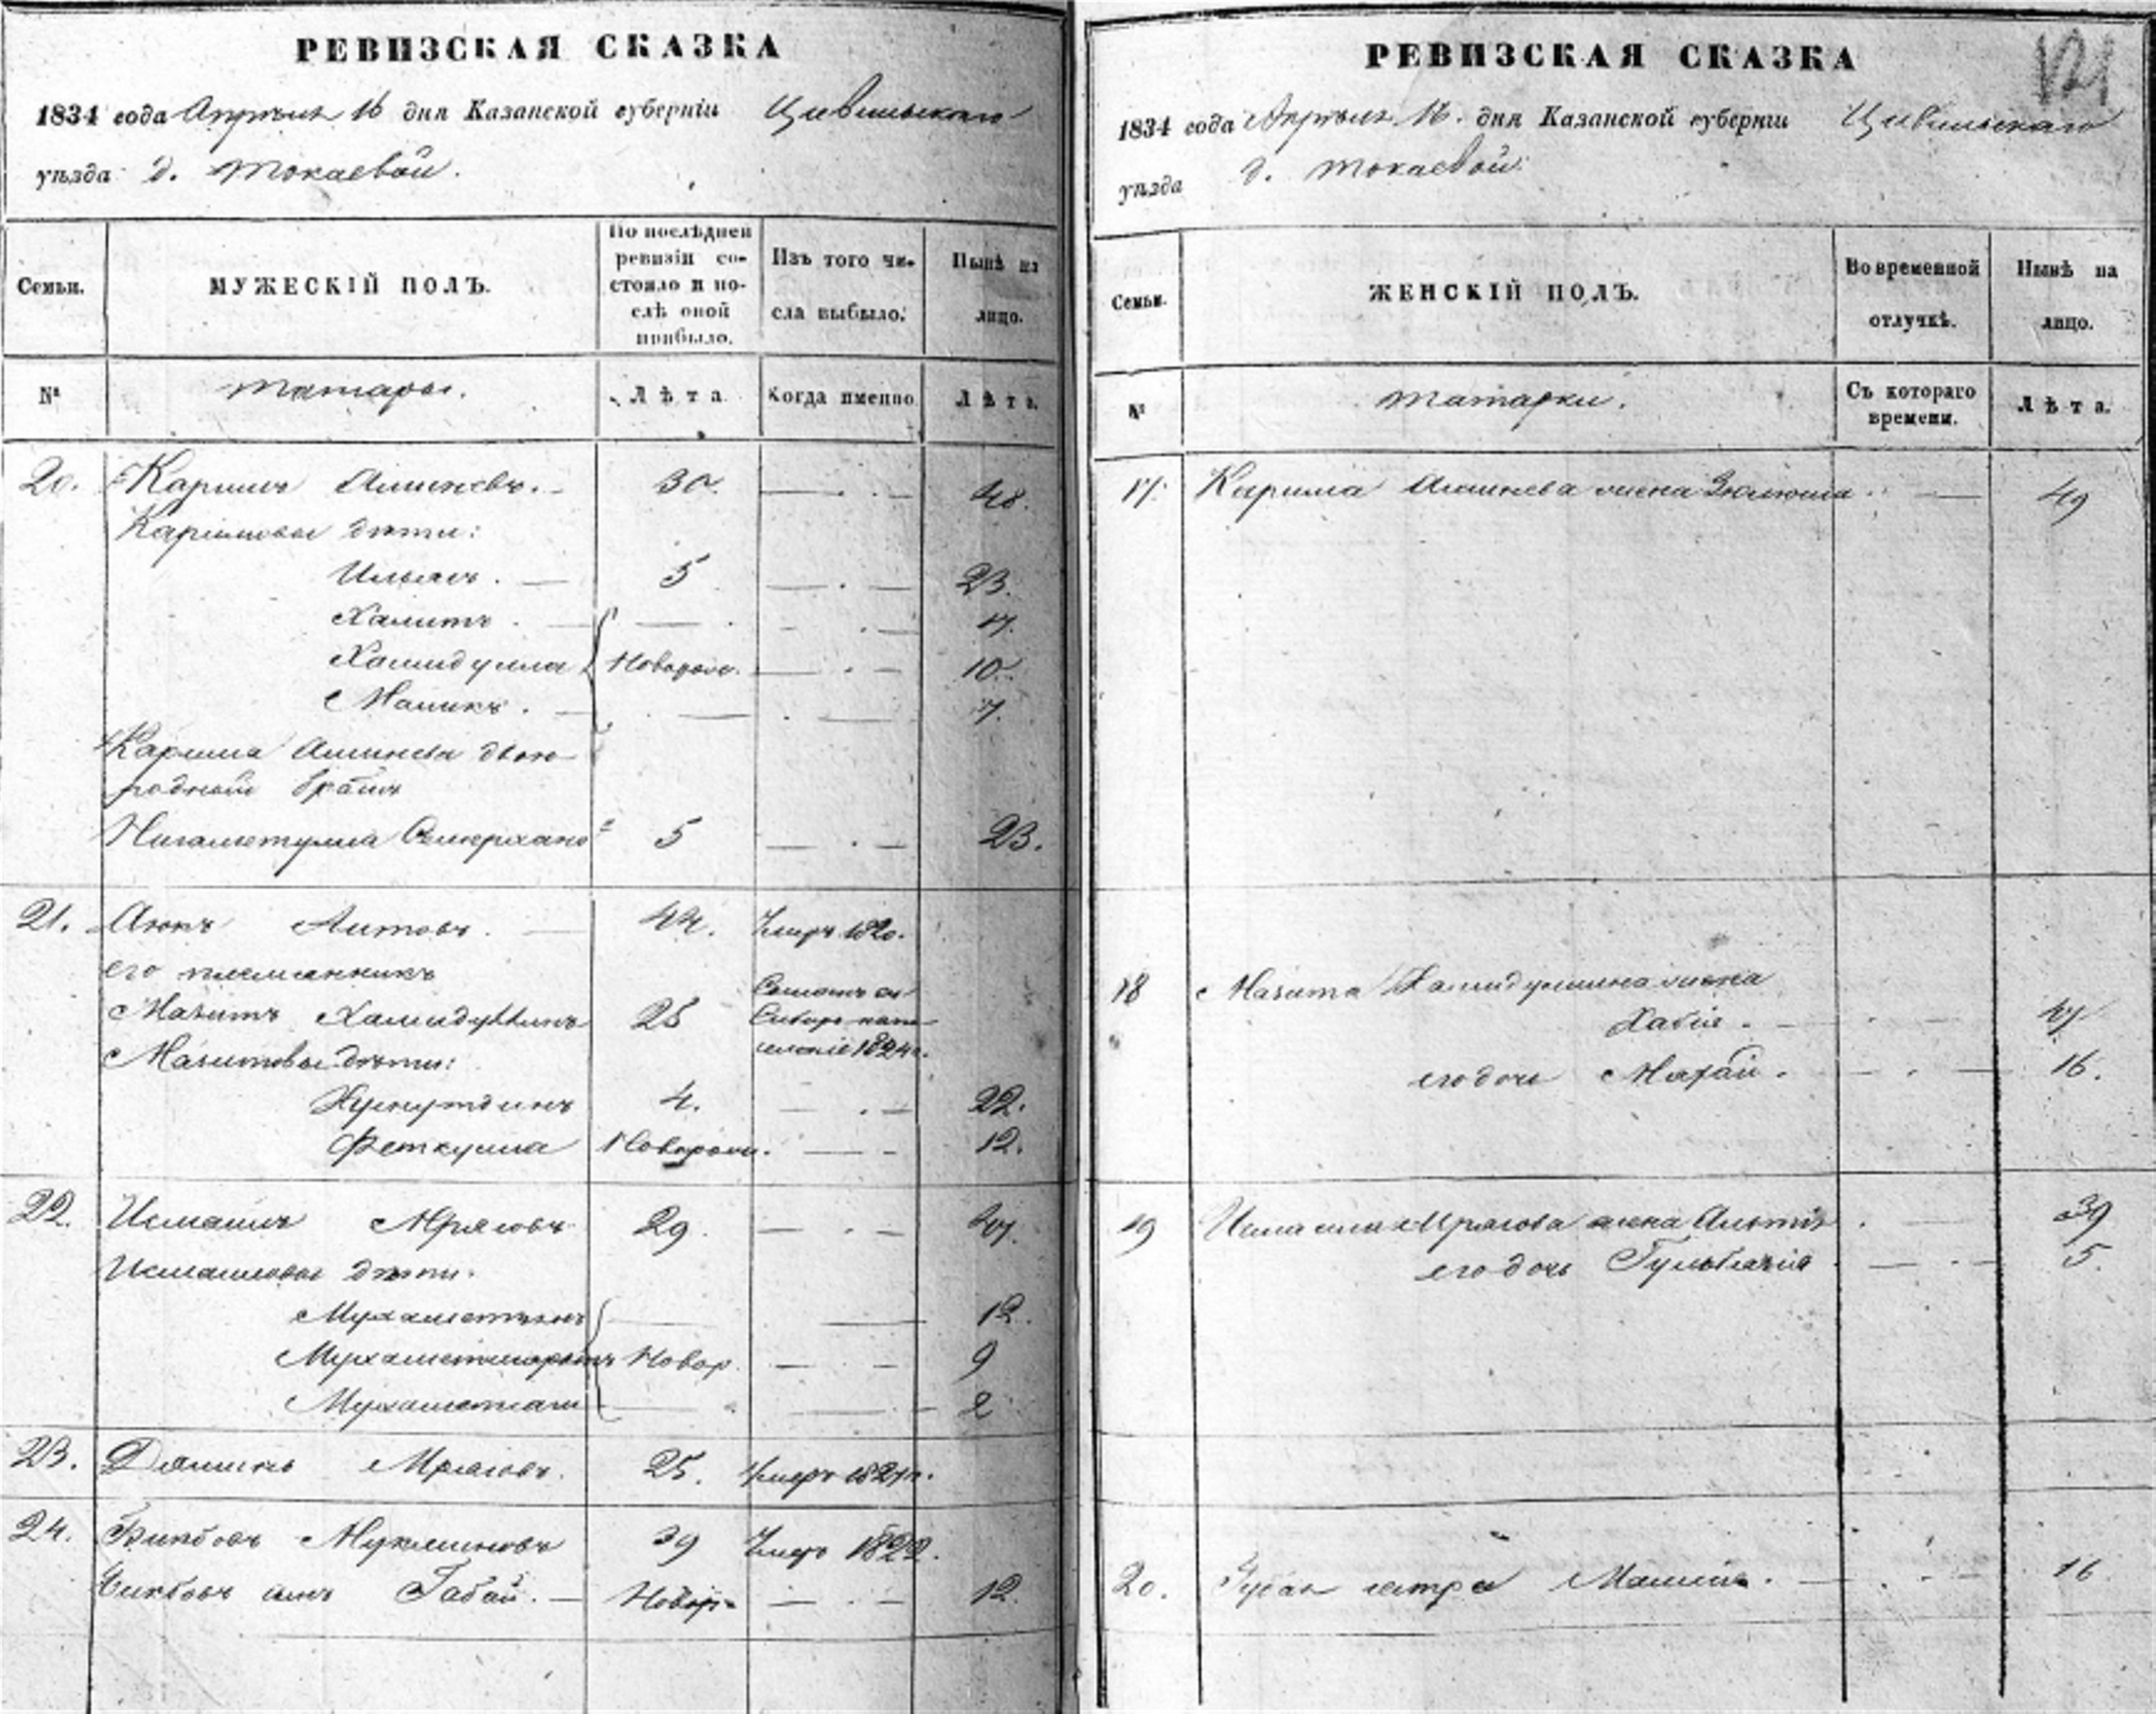 РЕВИЗСКАЯ СКАЗКА
1834 года Апрѣля 16 дня Казанской губерніи Цивильскаго
уѣзда д. Токаевой.
Семьи.
МУЖЕСКІЙ ПОЛЪ.
По послѣдней
ревизіи со-
стояло и по-
слѣ оной
прибыло.
Изъ того чи-
сла выбыло.
Нынѣ на
лицо.
№
татары.
Лѣта
Когда именно
Лѣта.
20. Каримъ Аминевъ. 30. 48.
Каримовы дѣти:
Ильясъ. 5 23.
Халитъ. 17.
Хамидулла Новорож. 10.
Маликъ. 7.
Карима Аминева двою-
родный братъ
Нигаметулла 5 23.
21. Аюкъ Аитовъ. 44. Умеръ 1820.
его племянникъ
Мазитъ Хамидуллинъ 25 Сосланъ въ
Сибирь на по-
селеніе 1824 г.
Мазитовы дѣти:
4. 22.
Феткулла Новорож. 12.
22. Исмаилъ Мрясовъ 29. 47.
Исмаиловы дѣти.
12.
Новор. 9
2
23. Мрясовъ. 25. Умеръ
24. Бикбовъ Муклиновъ 39 Умеръ 1822.
Бикбовъ сынъ Габай. Новор. 12.
РЕВИЗСКАЯ СКАЗКА
121
1834 года Апрѣля 16. дня Казанской губерніи Цивильскаго
уѣзда д. Токаевой.
Семьи.
ЖЕНСКІЙ ПОЛЪ.
Во временной
отлучкѣ.
Нынѣ на
лицо.
№
татарки.
Съ котораго
времени.
Лѣта.
17. Карима Аминева жена 49
18 Мазита Хамидуллина жена
Хабія. 47
его дочь 16.
19 Исмаила Мрясова жена 39
его дочь 5.
20. сестра 16